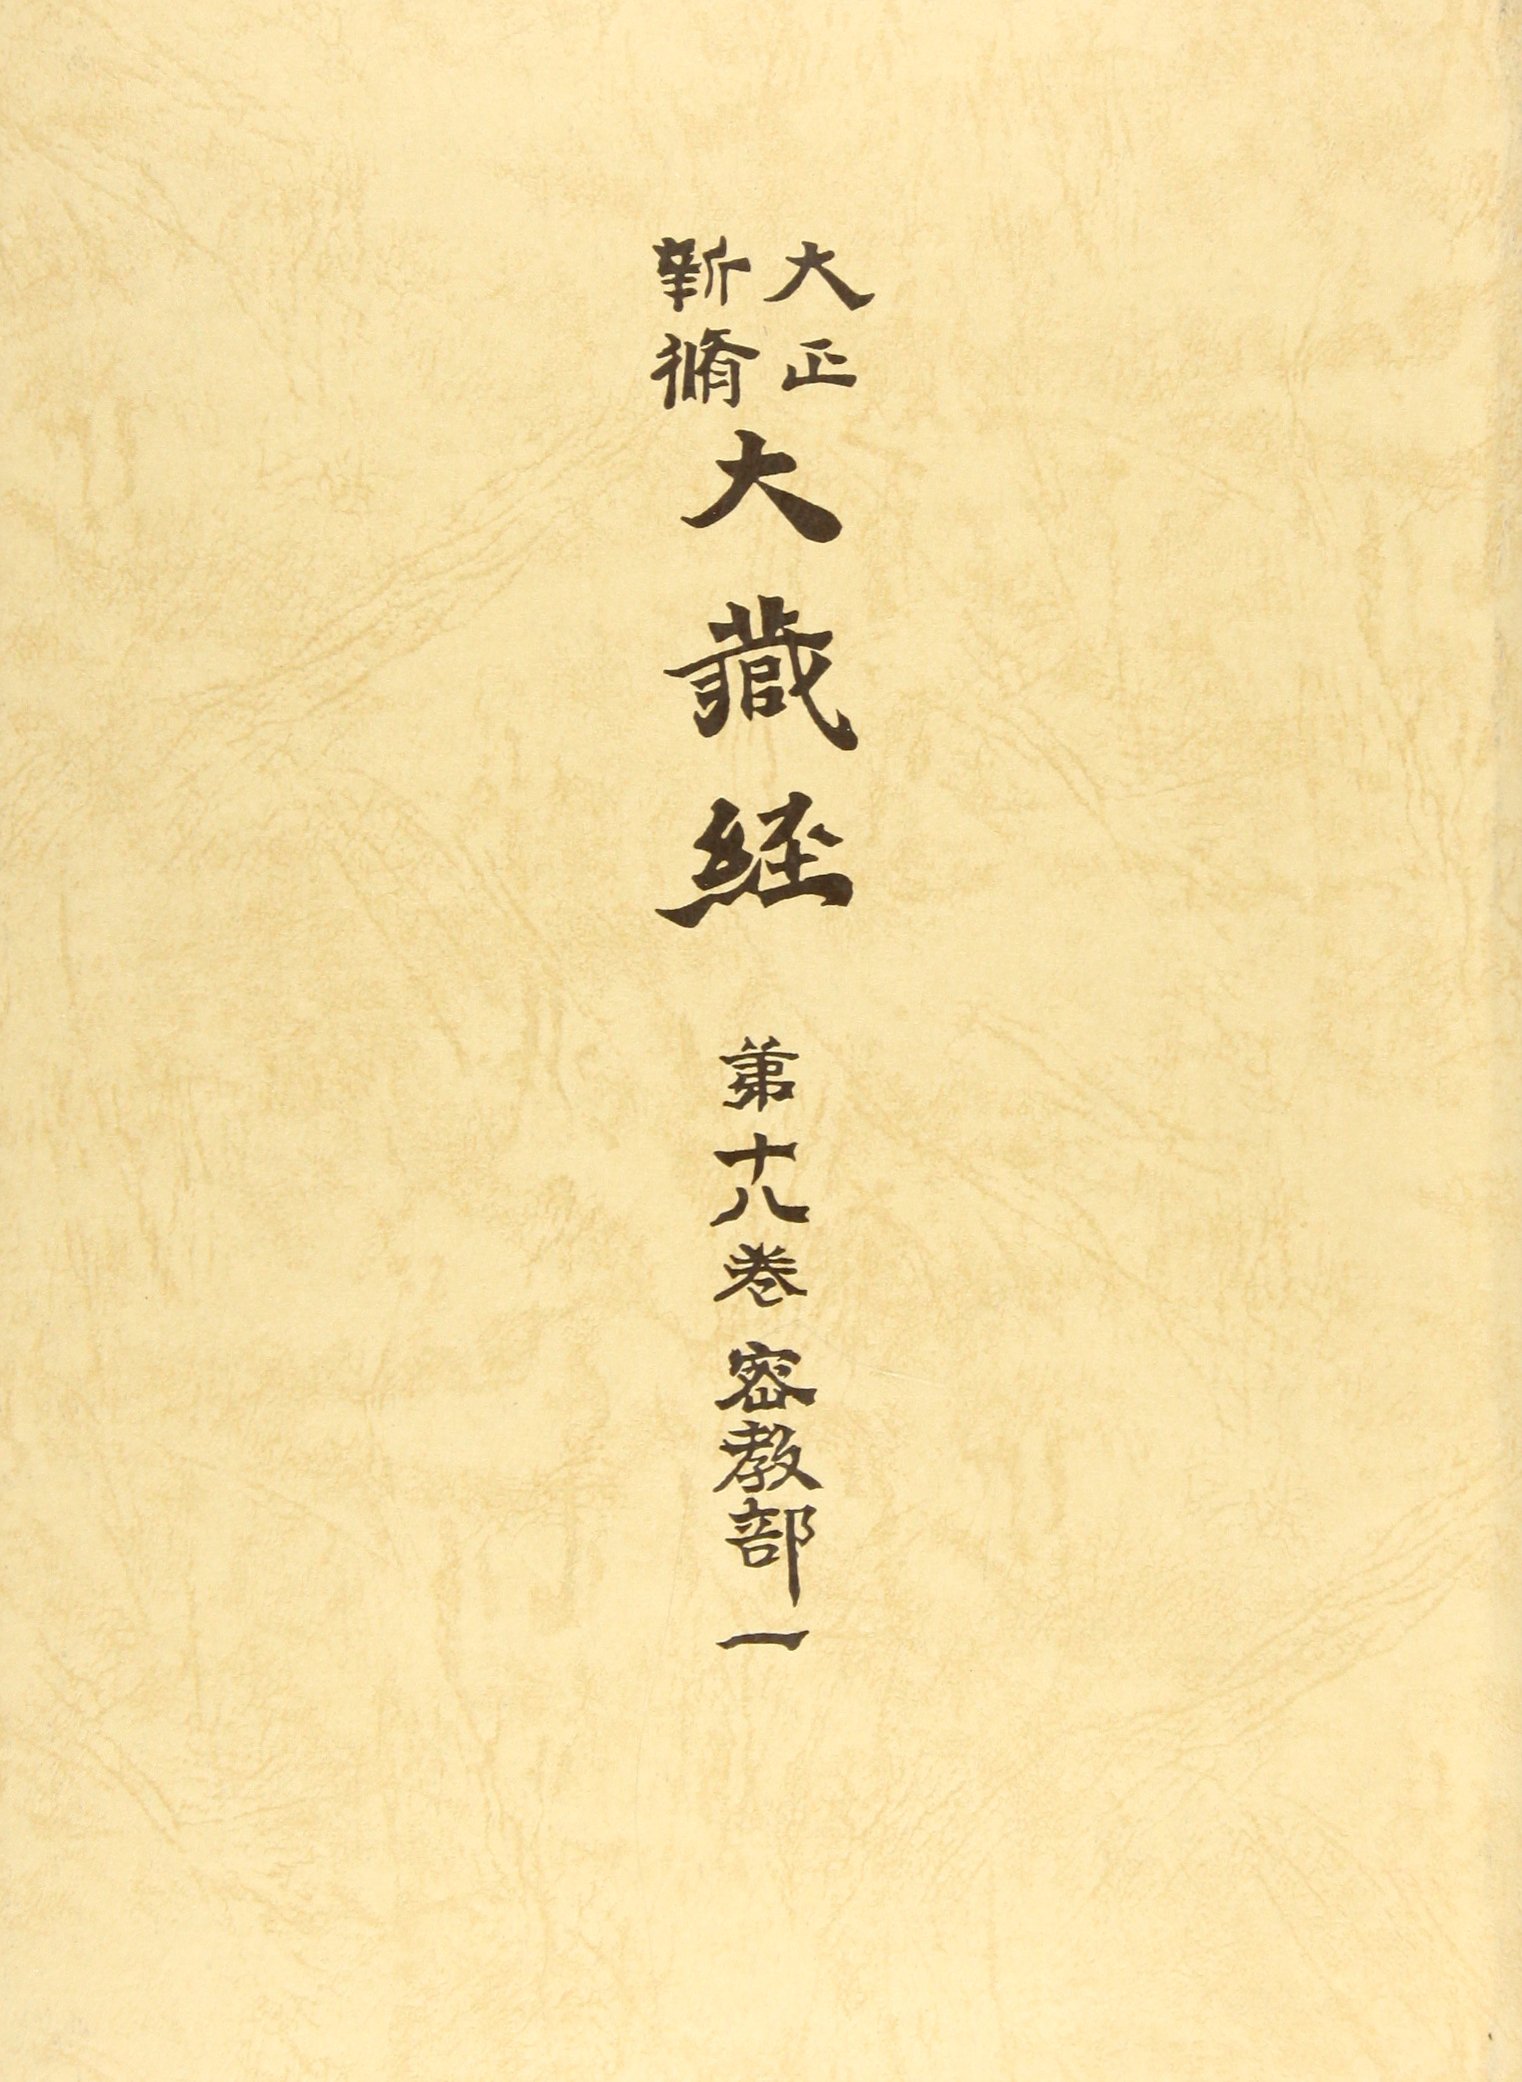 大正
新脩
大藏経
第十八卷
密教部一